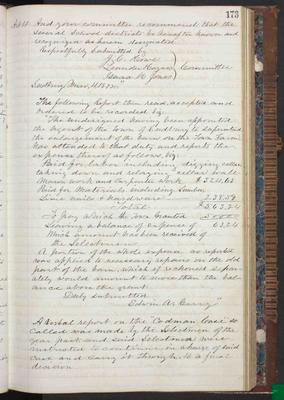 173
And your committee recommend that the
several School districts be hereafter known and
recognized as herein designated.
Respectfully Submitted by
Committee
The following Report then read, accepted and
ordered to be recorded Eq.
"The undersigned having been appointed
the agent of the town of to superintend
the enlargement of the barn on the Town Farm
has attended to that duty and reports the
expense thereof as follows, Eq.
Paid for labor, including digging cellar
taking down and relaying cellar wall
Mason work and Carpenter Work $324,65
Paid for Materials including Lumber
Lime nails & hardware 238,59
Total $563,24
To pay which the Town Granted 500
Leaving a balance of expense of 63,24
Which amount has been received of
the Selectmen
A portion of the whole expense as reported
was applied to necessary repairs on the old
part of the barn, which if reckoned separ-
ately would amount to more than the bal-
ance above the grant.
Duly submitted
Edwin A.
A verbal report on the "Codman case" so
called was made by the Selectmen of the
year past and said Selectmen were
instructed to continue in charge of said
case and carry it through to a final
decision